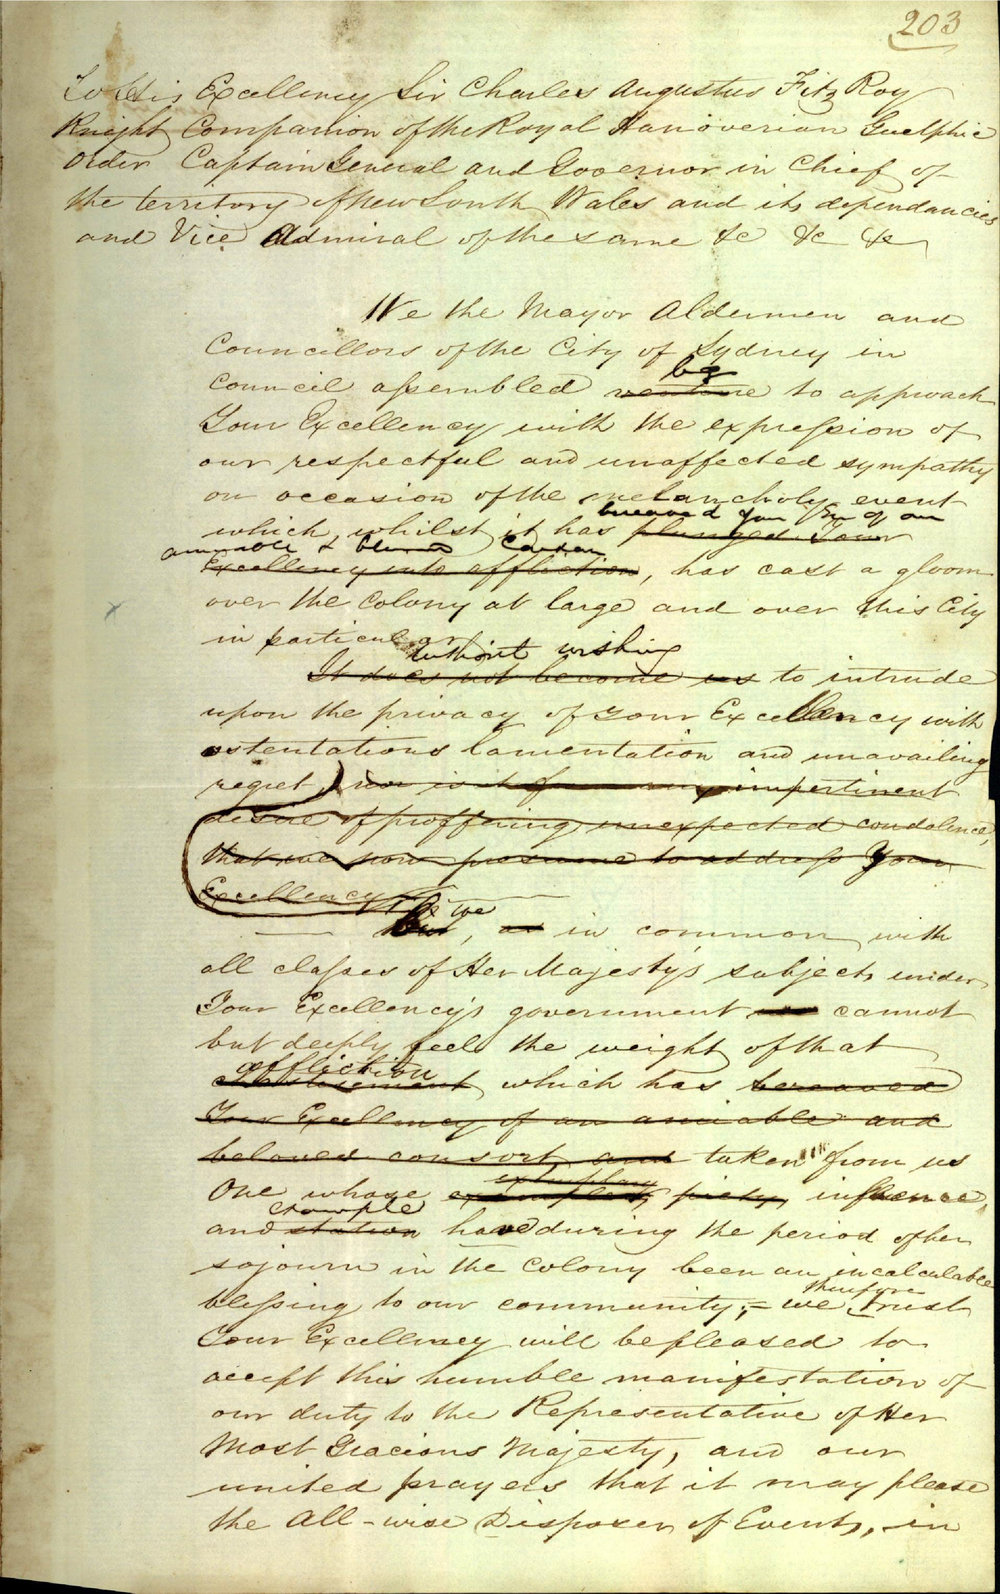 203
To His Excellency Sir Charles Augustus Fitz Roy
Knight Companion of the Royal Hanoverian Guelphic
Order Captain General and Governor in Chief of
the territory of New South Wales and its dependancies
and Vice Admiral of the same &c &c &c
We the Mayor Aldermen and
Councillors of the City of Sydney in
beg
Council assembled venture to approach
Your Excellency with the expression of
our respectful and unaffected sympathy
on occasion of the melancholy event
bereaved your Ex of an
which, whilst it has plunged Your
amiable & beloved Consort
Excellency into affliction, has cast a gloom
over the Colony at large and over this City
in particular
without wishing
It does not become us to intrude
upon the privacy of your Excellency with
ostentatious lamentation and unavailing
regret, nor is it from any impertinent
desire of proffering unexpected condolence,
that we now presume to address Your
Excellency
we
But, as in common with
all classes of Her Majesty's subjects under
Your Excellency's government we cannot
but deeply feel the weight of that
affliction
which has bereaved
Your Excellency of an amiable and
beloved consort and taken from us
exemplary
One whose exemplary piety, influence,
example
and station have during the period of her
sojourn in the Colony been an incalculable
therefore
blessing to our community; – we trust
Your Excellency will be pleased to
accept this humble manifestation of
our duty to the Representative of Her
Most Gracious Majesty, and our
united prayers that it may please
the All-wise Disposer of Events, in